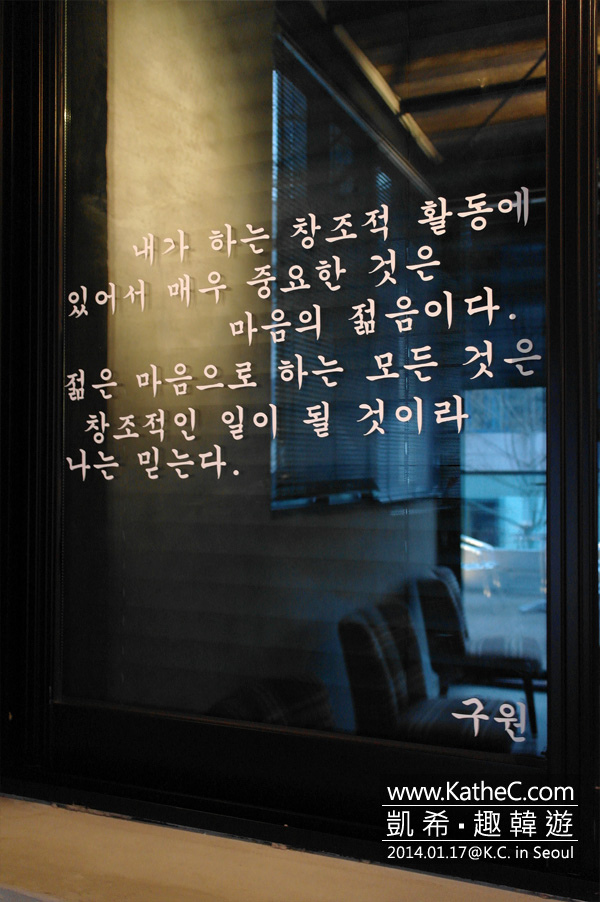 내가 하는 창조적 활동에
있어서 매우 중요한 것은
마음의 젊음이다.
젊은 마음으로 하는 모든 것은
창조적인 일이 될 것이라
나는 믿는다.
구원
www.KatheC.com
凱希▪趣韓遊
2014.01.17@K.C. in Seoul